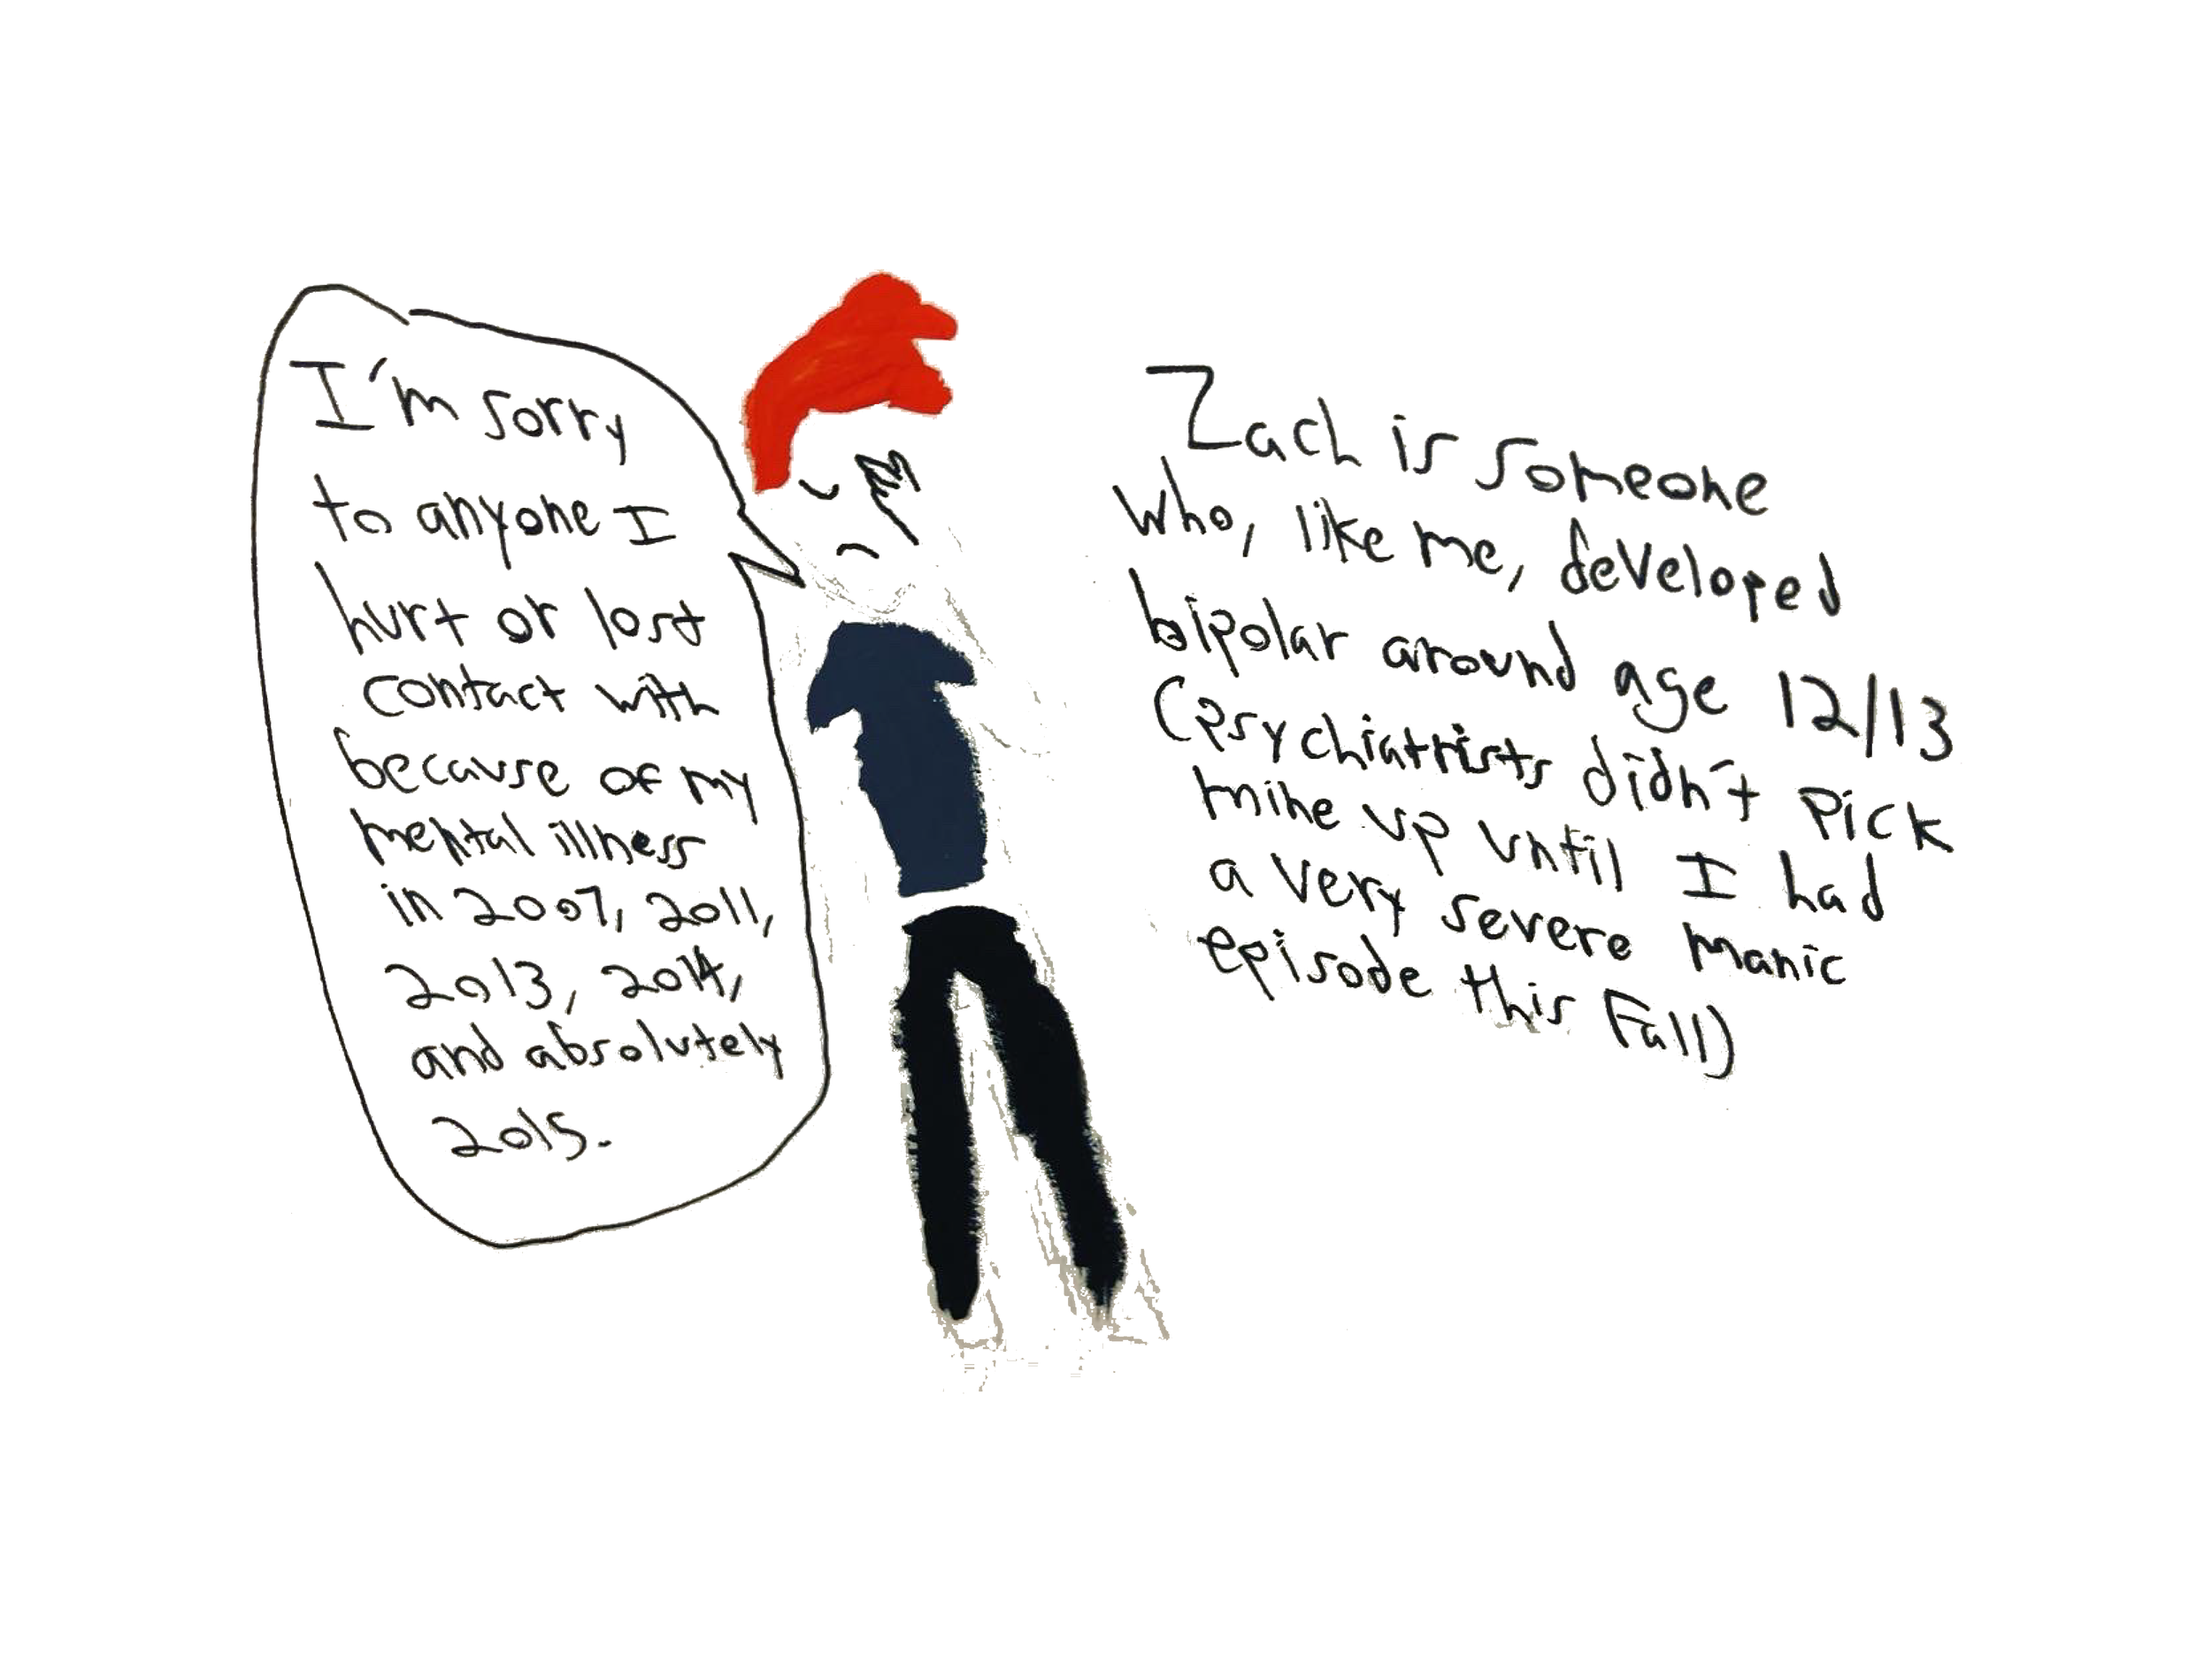 I'm sorry
to anyone I
hurt or lost
contact with
because of my
mental illness
in 2007, 2011,
2013, 2014,
and absolutely
2015.
Zach is someone
who, like me, developed
bipolar around age 12/13
(psychiatrists didn't pick
mine up until I had
a very severe manic
episode this Fall)